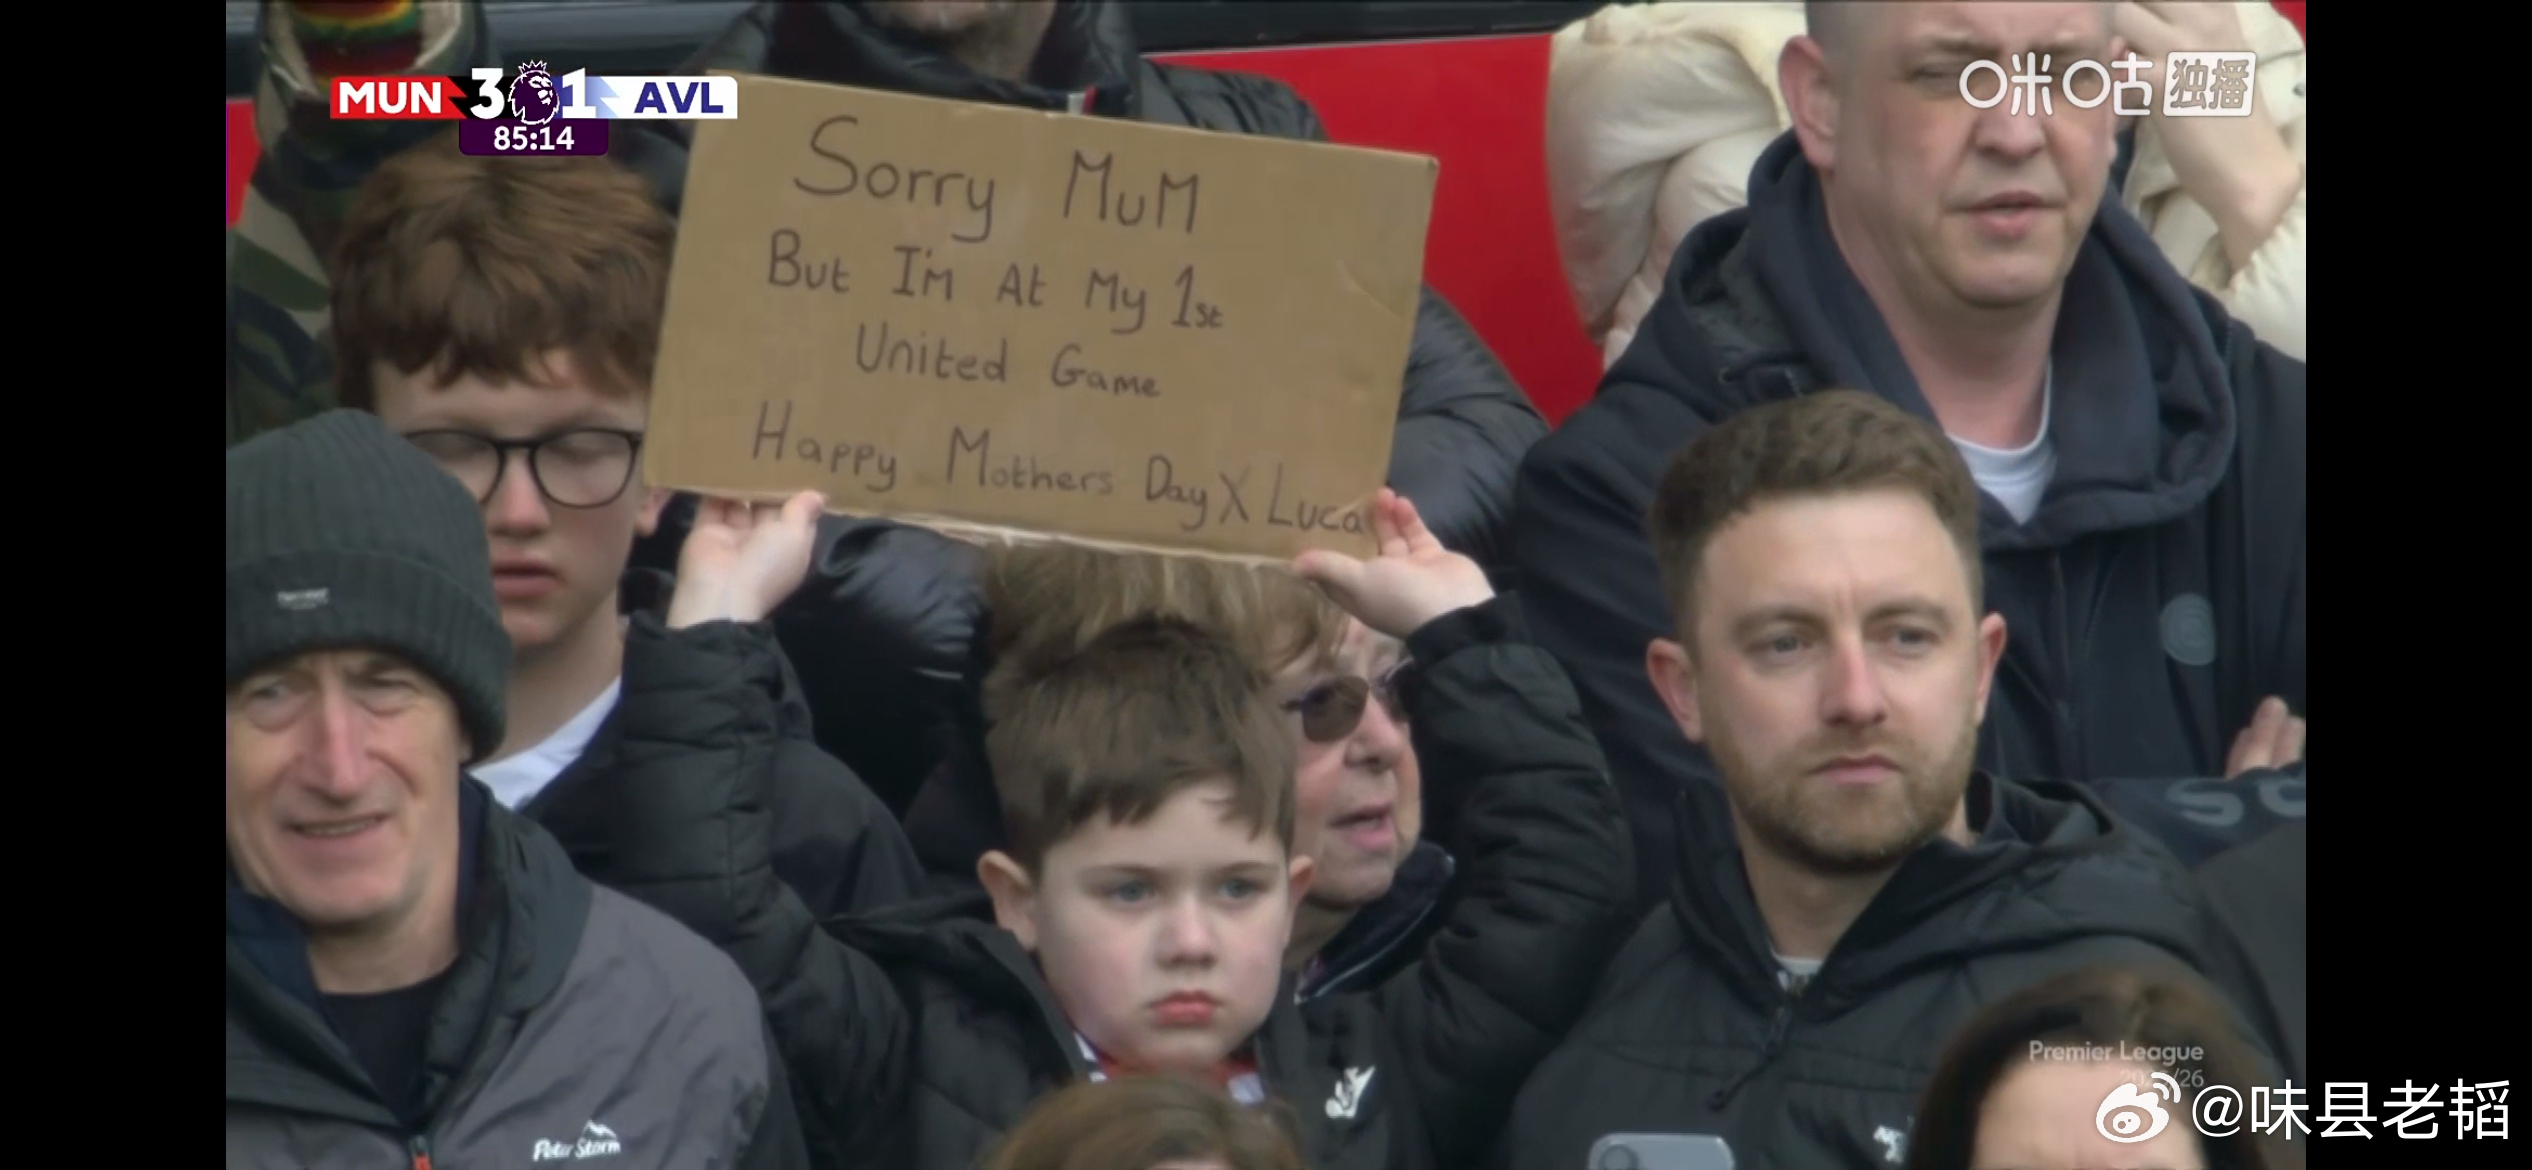 MUN 3 1 AVL
85:14
咪咕 独播
Sorry MuM
But I'm At My 1st
United Game
Happy Mothers Day X Luca
Peter Storm
Premier League
@味县老韬